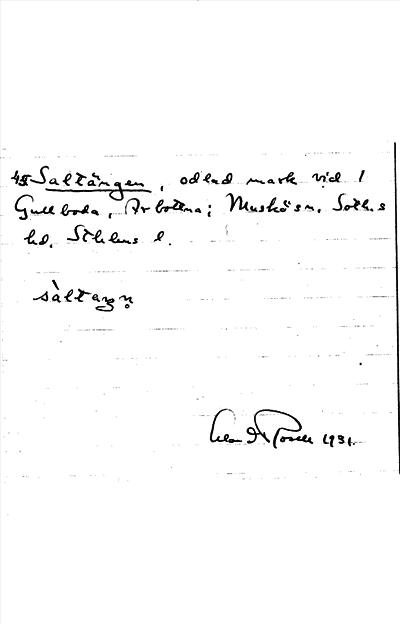 Saltängen, odlad mark vid 1
Gullboda, Arbottna; Muskö sn. Soth.s
hd. Sthlms l.
sàltæŋn̥
1931.